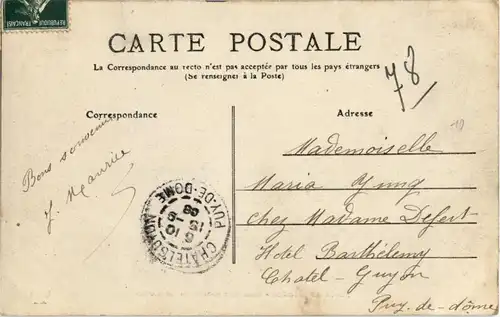 REPUBLIQUE FRANÇAISE
CARTE POSTALE
La Correspondance au recto n'est pas acceptée par tous les pays étrangers
(Se renseigner à la Poste)
78
Correspondance
Adresse
19
Bons souvenirs
J. Maurice
Mademoiselle
Maria Yung
chez Madame Defert
Hotel Barthélemy
Chatel-Guyon
Puy-de-dôme
CHATELGUYON
PUY-DE-DOME